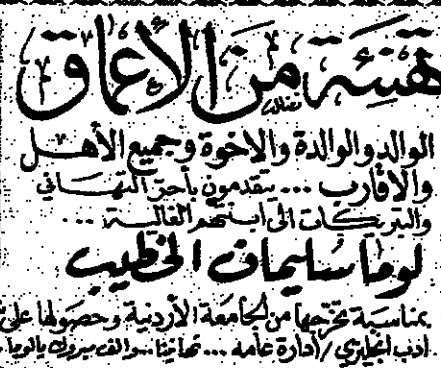 تهنئة من الأعماق
الوالد والوالدة والاخوة وجميع الأهل
والاقارب ... يتقدمون بأحر التهاني
والتبريكات الى ابنتهم الغالية ...
لوما سليمان الخطيب
بمناسبة تخرجها من الجامعة الأردنية وحصولها على
ادب انجليزي / ادارة عامه ... تهانينا .. والف مبروك يا لوما .